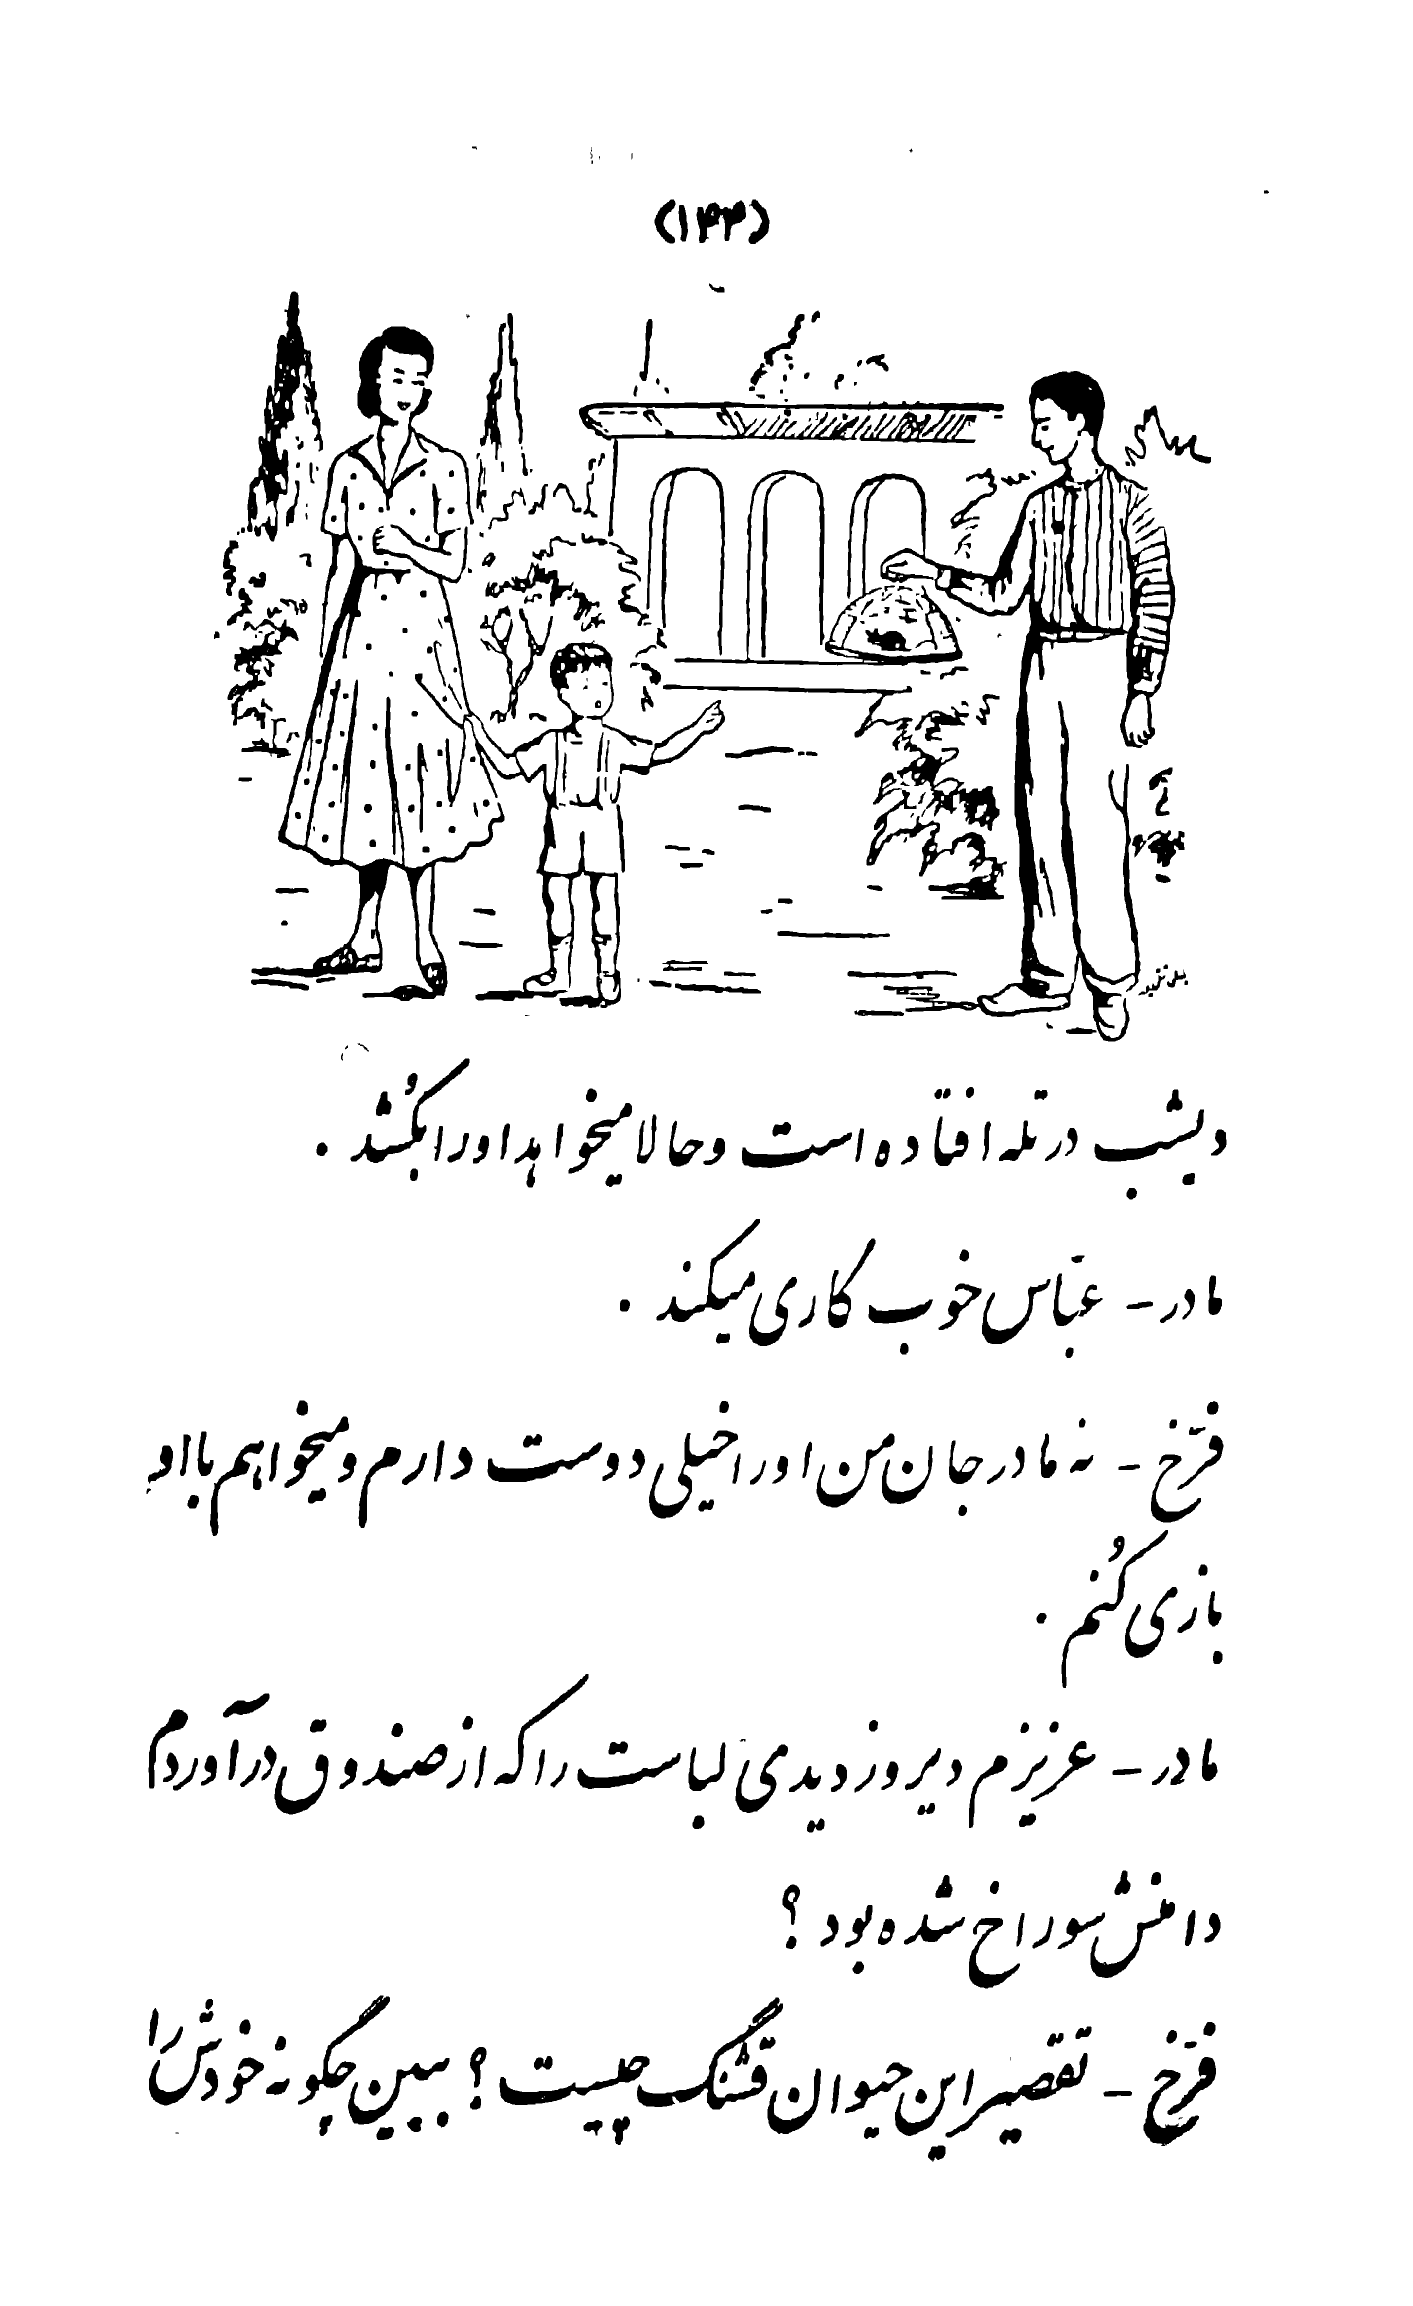 (۱۴۳)
دیشب در تله افتاده است و حالا میخواهد او را بکُشد .
مادر - عبّاس خوب کاری میکند .
فرّخ - نه مادر جان من او را خیلی دوست دارم و میخواهم با او
بازی کُنم .
مادر - عزیزم دیروز دیدی لباست را که از صندوق در آوردم
دامنش سوراخ شده بود ؟
فرّخ - تقصیر این حیوان قشنگ چیست ؟ ببین چگونه خودش را